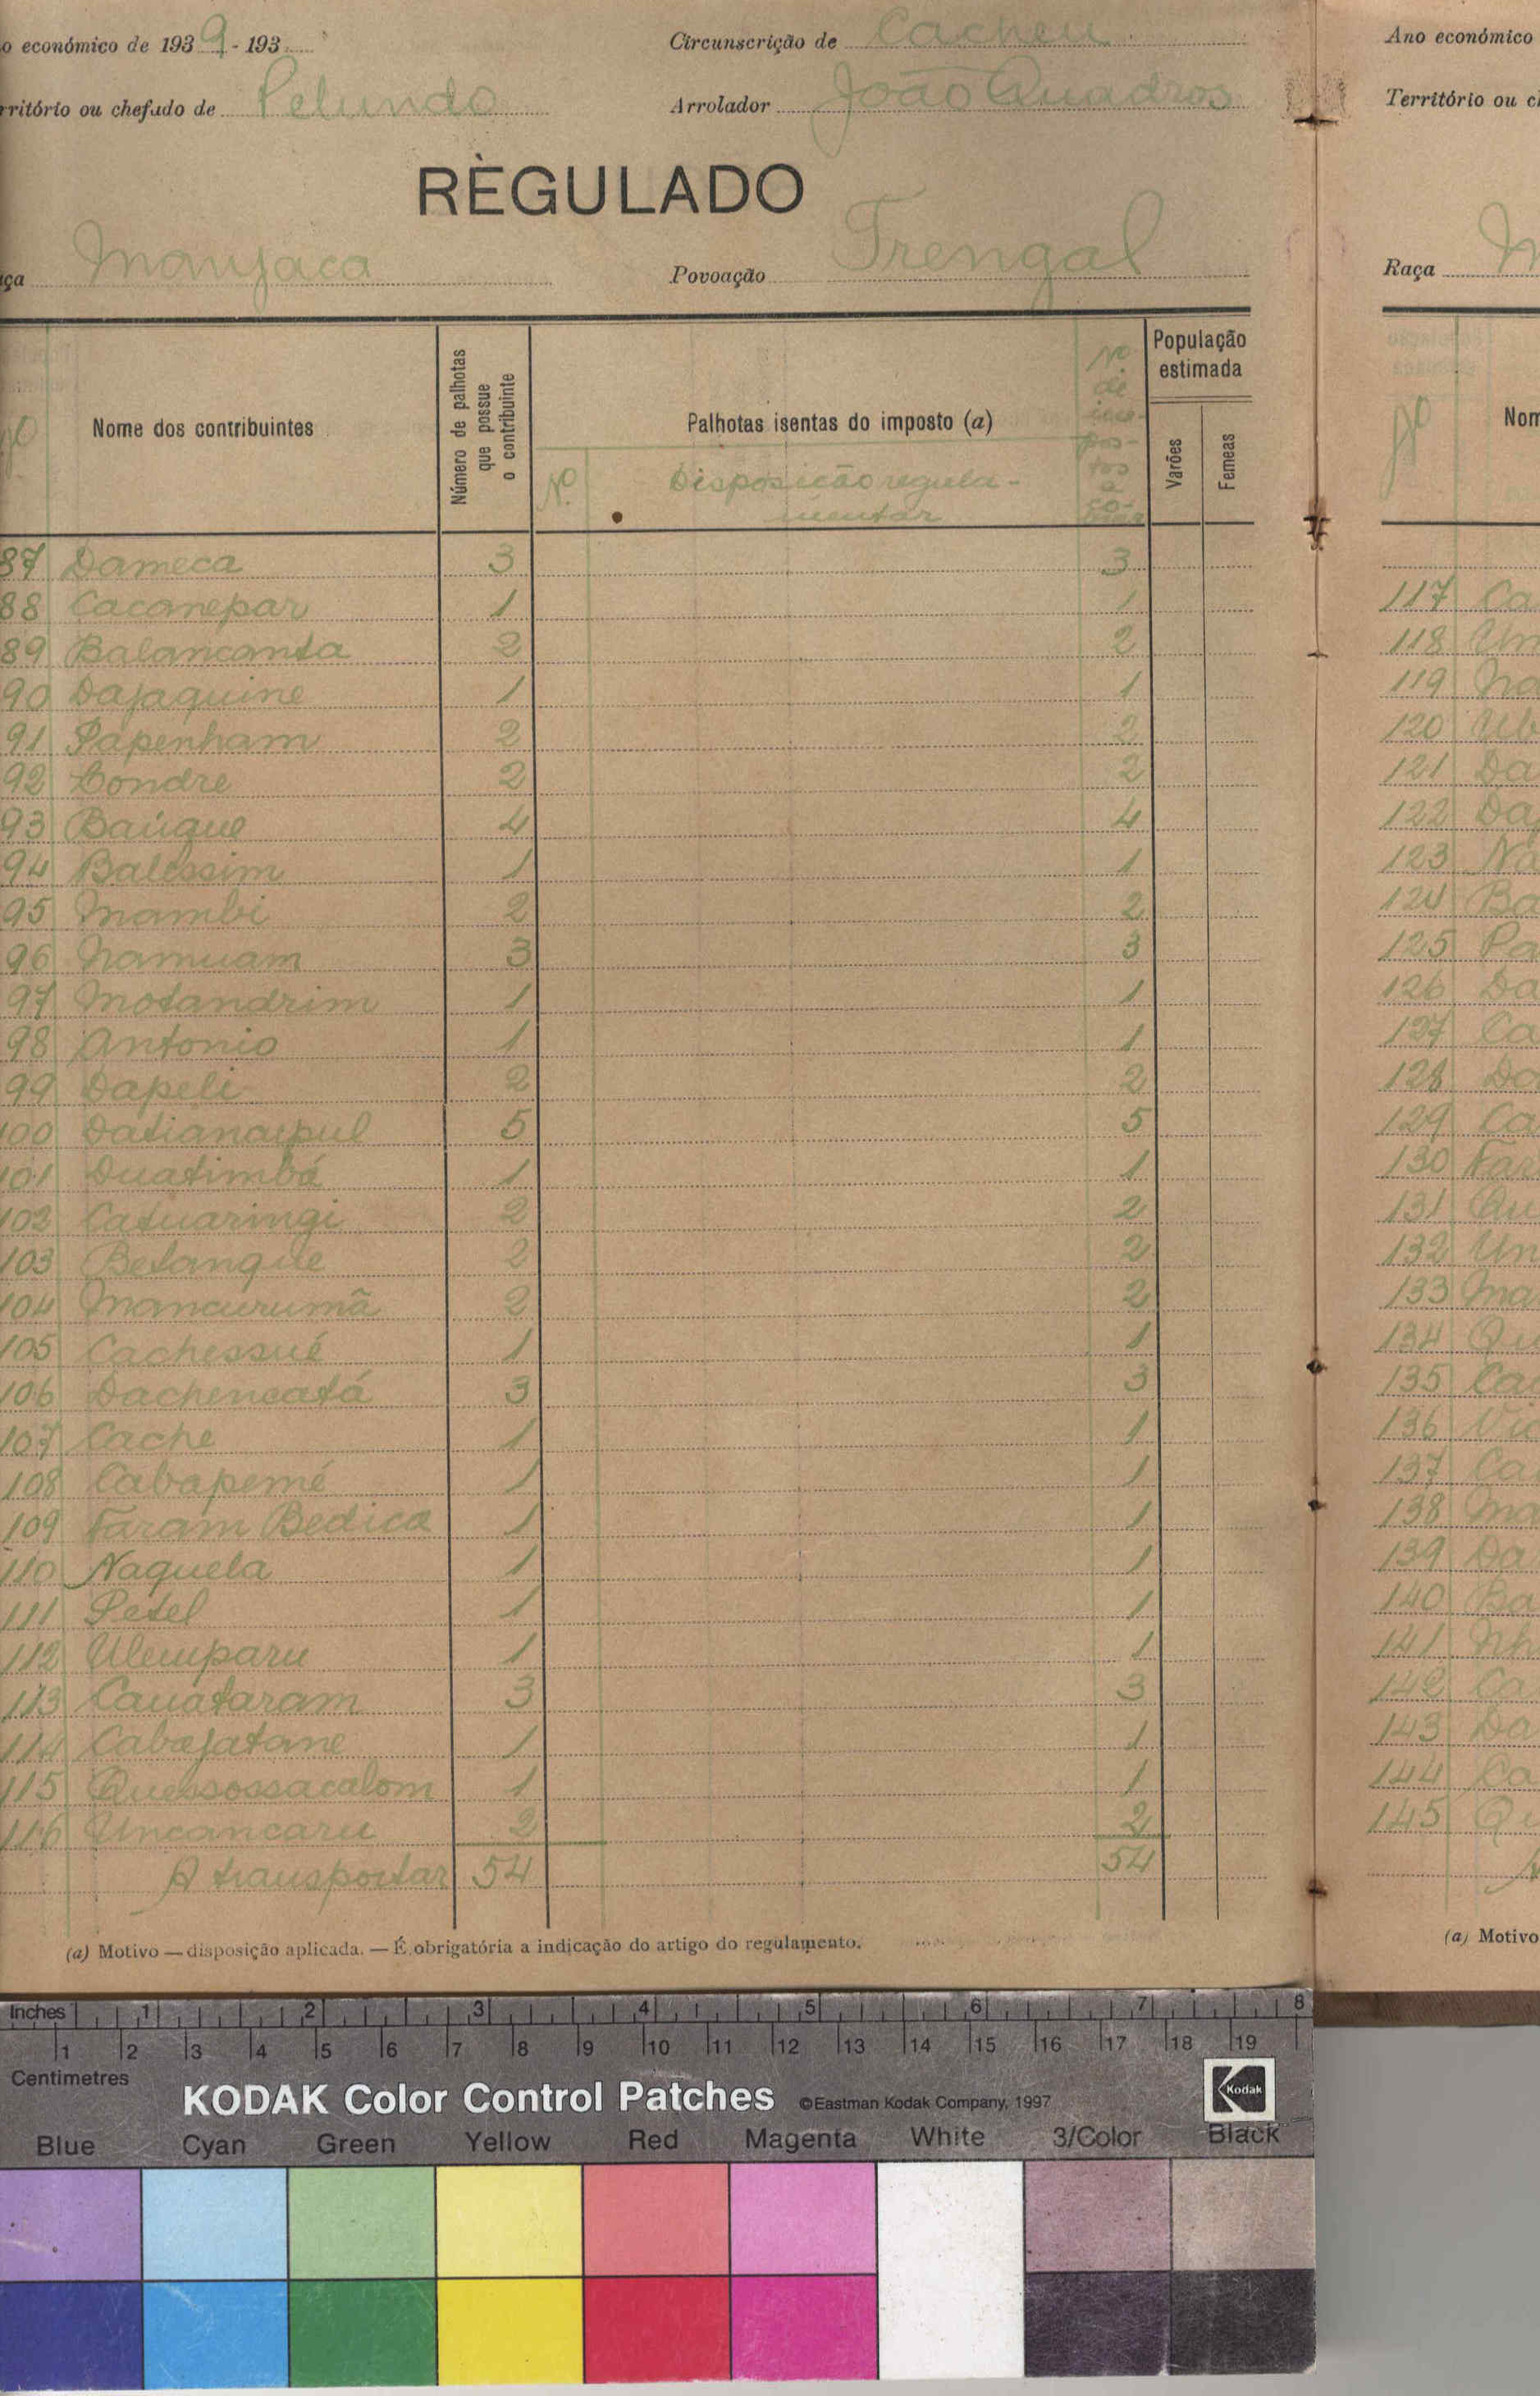 o económico de 1939-193
Circunscrição de Cacheu
rritório ou chefado de Pelundo
Arrolador João Quadros
RÈGULADO
ça Manjaca
Povoação Trengal
Nº
Nome dos contribuintes
Número de palhotas que possue o contribuinte
Palhotas isentas do imposto (a)
Nº
Disposição regula-
mentar
Nº de impostos a
População estimada
Varões
Femeas
87 Dameca 3 3
88 Cacanepar 1 1
89 Balancanta 2 2
90 Dajaquine 1 1
91 Papenham 2 2
92 Condre 2 2
93 Baúque 4 4
94 Balessim 1 1
95 Mambi 2 2
96 Namuam 3 3
97 Motandrim 1 1
98 Antonio 1 1
99 Dapeli 2 2
100 5 5
101 Duatimbá 1 1
102 Catuaringi 2 2
103 Betanque 2 2
104 Mancurumã 2 2
105 Cachessué 1 1
106 Dachencatá 3 3
107 Cache 1 1
108 Cabapemé 1 1
109 Faram Bedica 1 1
110 Naquela 1 1
111 Petel 1 1
112 Ulemparu 1 1
113 Cauataram 3 3
114 Cabajatane 1 1
115 Quessossacalom 1 1
116 Uncancaru 2 2
A transportar 54 54
(a) Motivo — disposição aplicada. — É obrigatória a indicação do artigo do regulamento.
Ano económico
Território ou c
Raça M
Nº
Nom
117 Ca
118 Un
119 Na
120 Ub
121 Da
122 Da
123 Na
124 Ba
125 Pa
126 Da
127 Ca
128 Da
129 Ca
130 Far
131 Qu
132 Un
133 Ma
134 Qu
135 Ca
136 Vi
137 Ca
138 Ma
139 Da
140 Ba
141 Nh
142 Ca
143 Da
144 Ca
145 Qu
A
(a) Motivo
Inches 1 2 3 4 5 6 7 8
1 2 3 4 5 6 7 8 9 10 11 12 13 14 15 16 17 18 19
Centimetres
KODAK Color Control Patches ©Eastman Kodak Company, 1997
Kodak
Blue Cyan Green Yellow Red Magenta White 3/Color Black